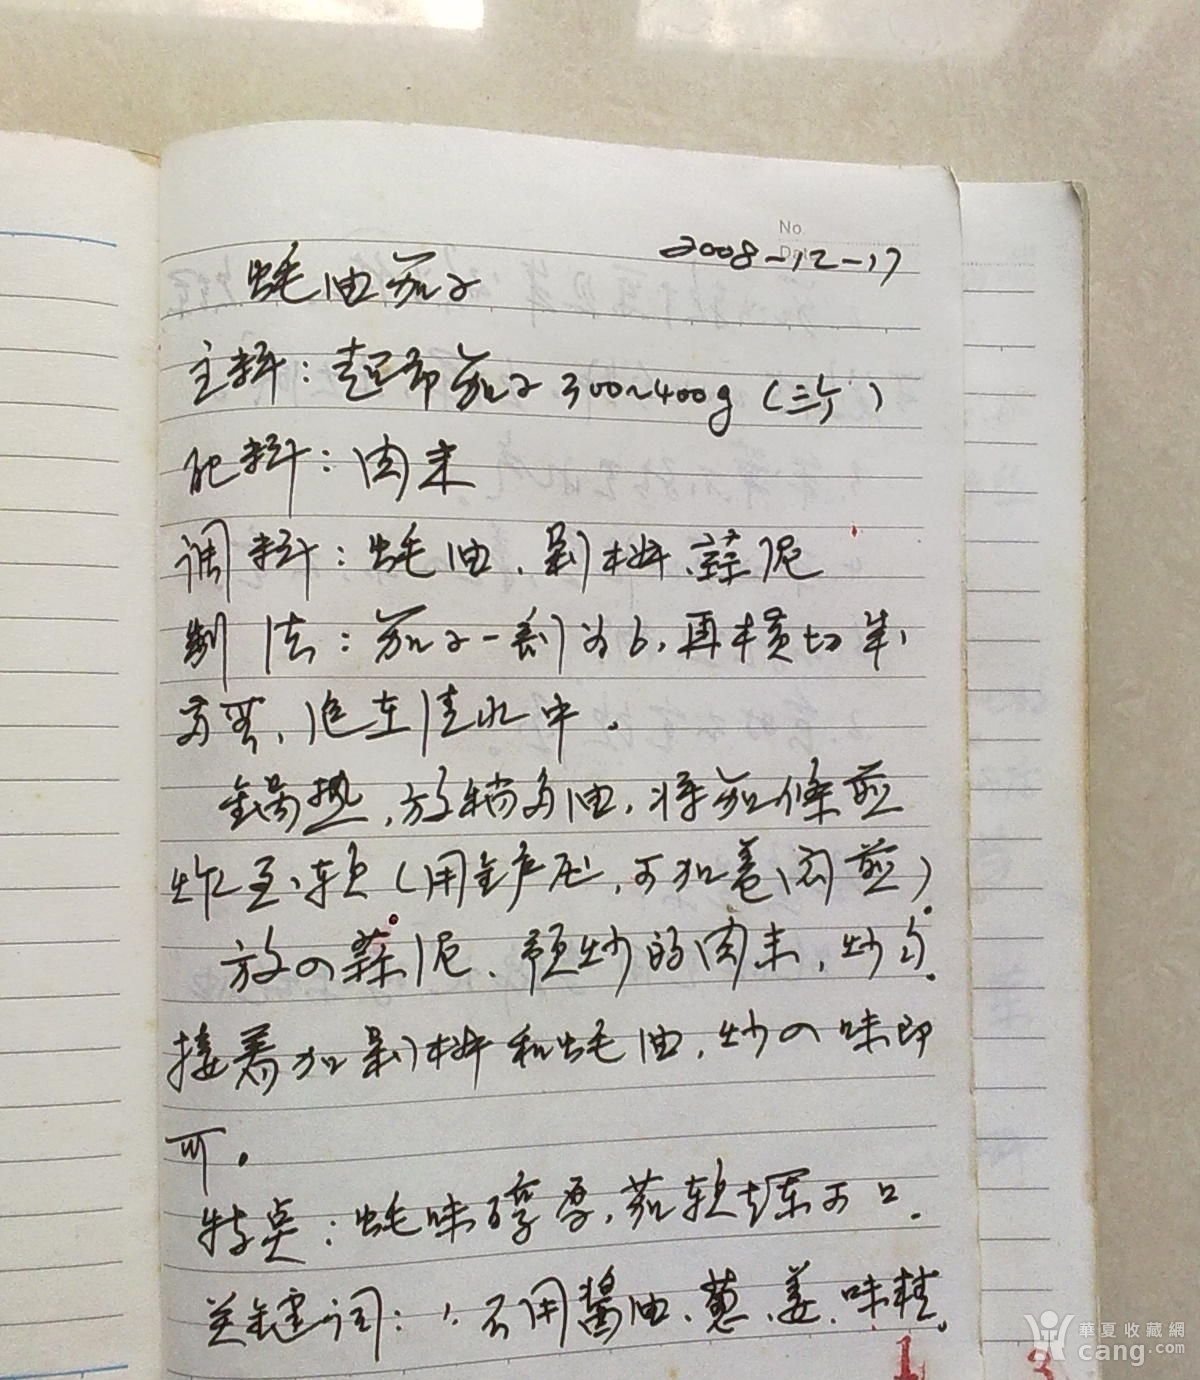 No
Date
2008-12-17
蚝油茄子
主料：超市茄子300~400g（三个）
配料：肉末
调料：蚝油、剁椒、蒜泥
制法：茄子一剖为6，再横切半，
泡在清水中。
锅热，放稍多油，将茄條煎
炸至软（用铲压，可加盖闷煎）。
放入蒜泥、预炒的肉末，炒匀。
接着加剁椒和蚝油，炒入味即
可。
特点：蚝味醇厚，茄软可口。
关键词：1.不用醬油、蔥、姜、味精。
1
3
華夏收藏網
cang.com